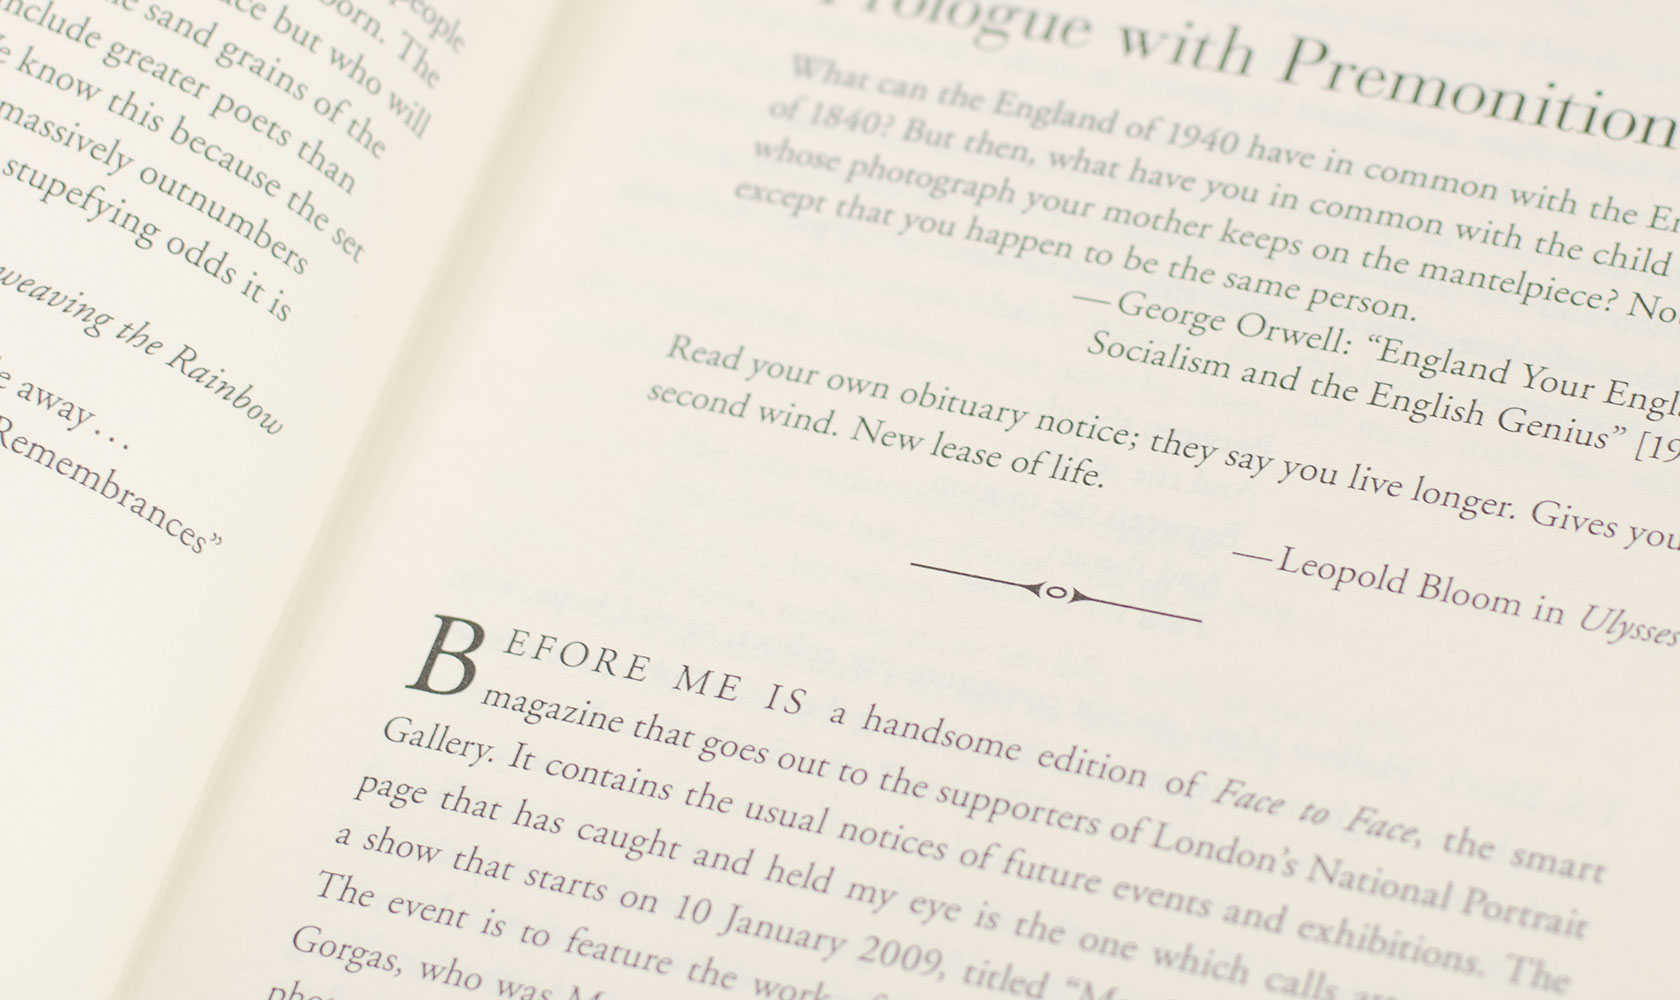 people
born. The
but who will
sand grains of the
include greater poets than
know this because the set
massively outnumbers
stupefying odds it is
weaving the Rainbow
away…
Remembrances”
Prologue with Premonition
What can the England of 1940 have in common with the
of 1840? But then, what have you in common with the child
whose photograph your mother keeps on the mantelpiece?
except that you happen to be the same person.
—George Orwell: “England Your
Socialism and the English Genius” [19
Read your own obituary notice; they say you live longer. Gives you
second wind. New lease of life.
—Leopold Bloom in Ulysses
BEFORE ME IS a handsome edition of Face to Face, the smart
magazine that goes out to the supporters of London’s National Portrait
Gallery. It contains the usual notices of future events and exhibitions. The
page that has caught and held my eye is the one which calls
a show that starts on 10 January 2009, titled
The event is to feature the work
Gorgas, who was